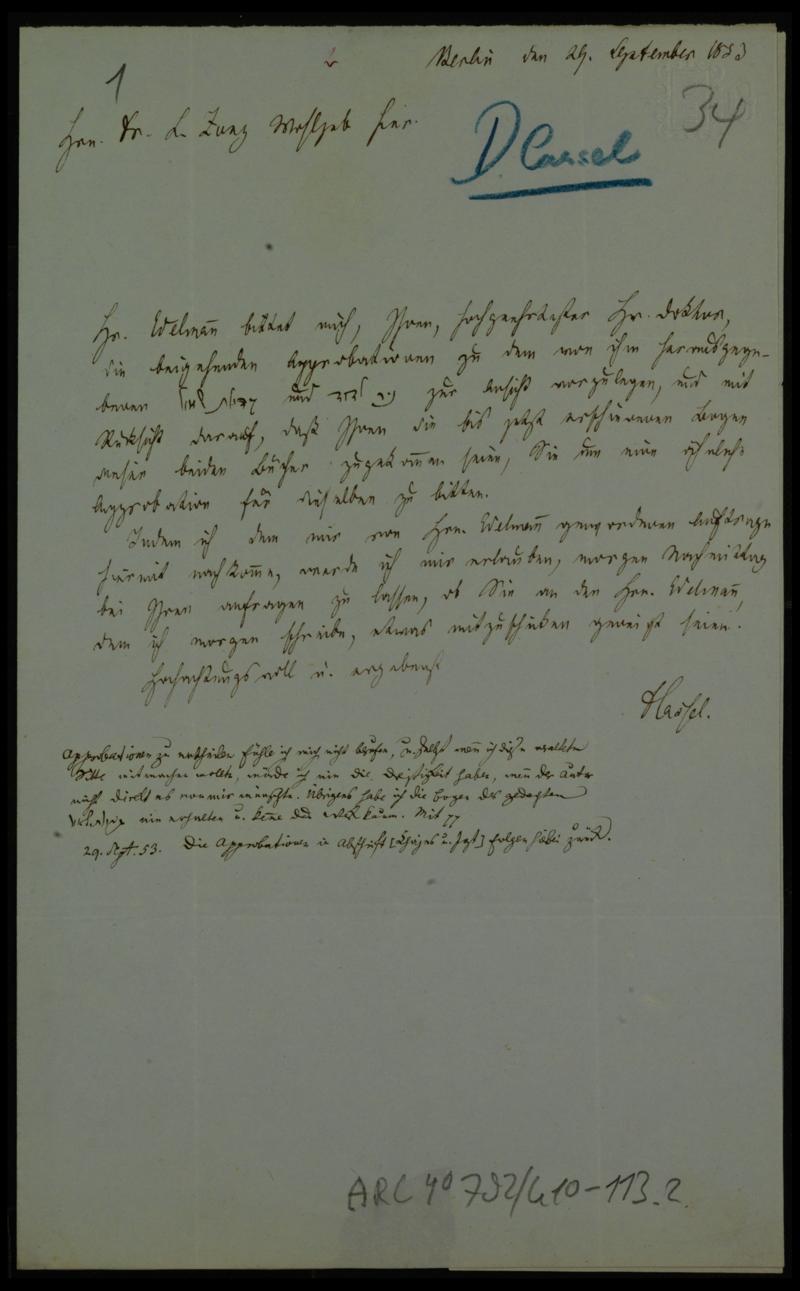 1
Berlin den 29. September 1853
34
Hrn. Dr. L. Zunz Wohlgeb hier.
D Cassel
Hr. Edelmann bittet mich, Ihnen, hochgeehrtester Hr. Doktor,
die beigehenden Approbationen zu dem von ihm herausgege-
benen und zur Ansicht vorzulegen, und mit
Rücksicht darauf, daß Ihnen die bis jetzt erschienenen Bogen
dieser beiden Bücher zugekommen seien, Sie um eine ähnliche
Approbation für dieselben zu bitten.
Indem ich dem mir von Hrn. Edelmann gewordenen Auftrage
hiermit nachkomme, werde ich mir erlauben, morgen Nachmittag
bei Ihnen anfragen zu lassen, ob Sie an den Hrn. Edelmann,
dem ich morgen schreibe, etwas mitzuschicken geneigt seien.
Hochachtungsvoll u. ergebenst
Approbationen zu ertheilen fühle ich mich nicht berufen, u. selbst wenn ich diese veraltete
Sitte mitmachen wollte, würde ich nie die Dreistigkeit haben, wenn der Autor
nicht direkt es von mir wünschte. Übrigens habe ich die Bogen des gedachten
nie erhalten u. kenne das Werk kaum. Mit
29. Sept. 53. Die Approbationen in Abschrift folgen hiebei zurück.
ARC 4° 792/G10-113.2